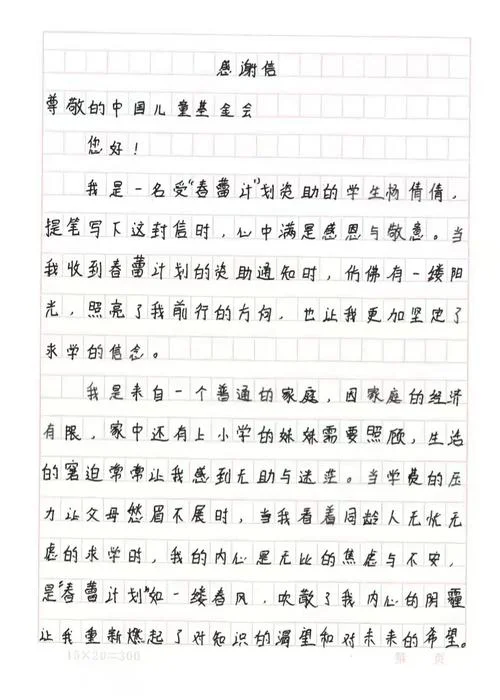 感谢信
尊敬的中国儿童基金会
您好！
我是一名受“春蕾计”划资助的学生杨倩倩，
提笔写下这封信时，心中满是感恩与敬意。当
我收到春蕾计划的资助通知时，仿佛有一缕阳
光，照亮了我前行的方向，也让我更加坚定了
求学的信念。
我是来自一个普通的家庭，因家庭的经济
有限，家中还有上小学的妹妹需要照顾，生活
的窘迫常常让我感到无助与迷茫。当学费的压
力让父母愁眉不展时，当我看着同龄人无忧无
虑的求学时，我的内心是无比的焦虑与不安，
是“春蕾计划”如一缕春风，吹散了我内心的阴霾
让我重新燃起了对知识的渴望和对未来的希望。
15×20=300 第 页